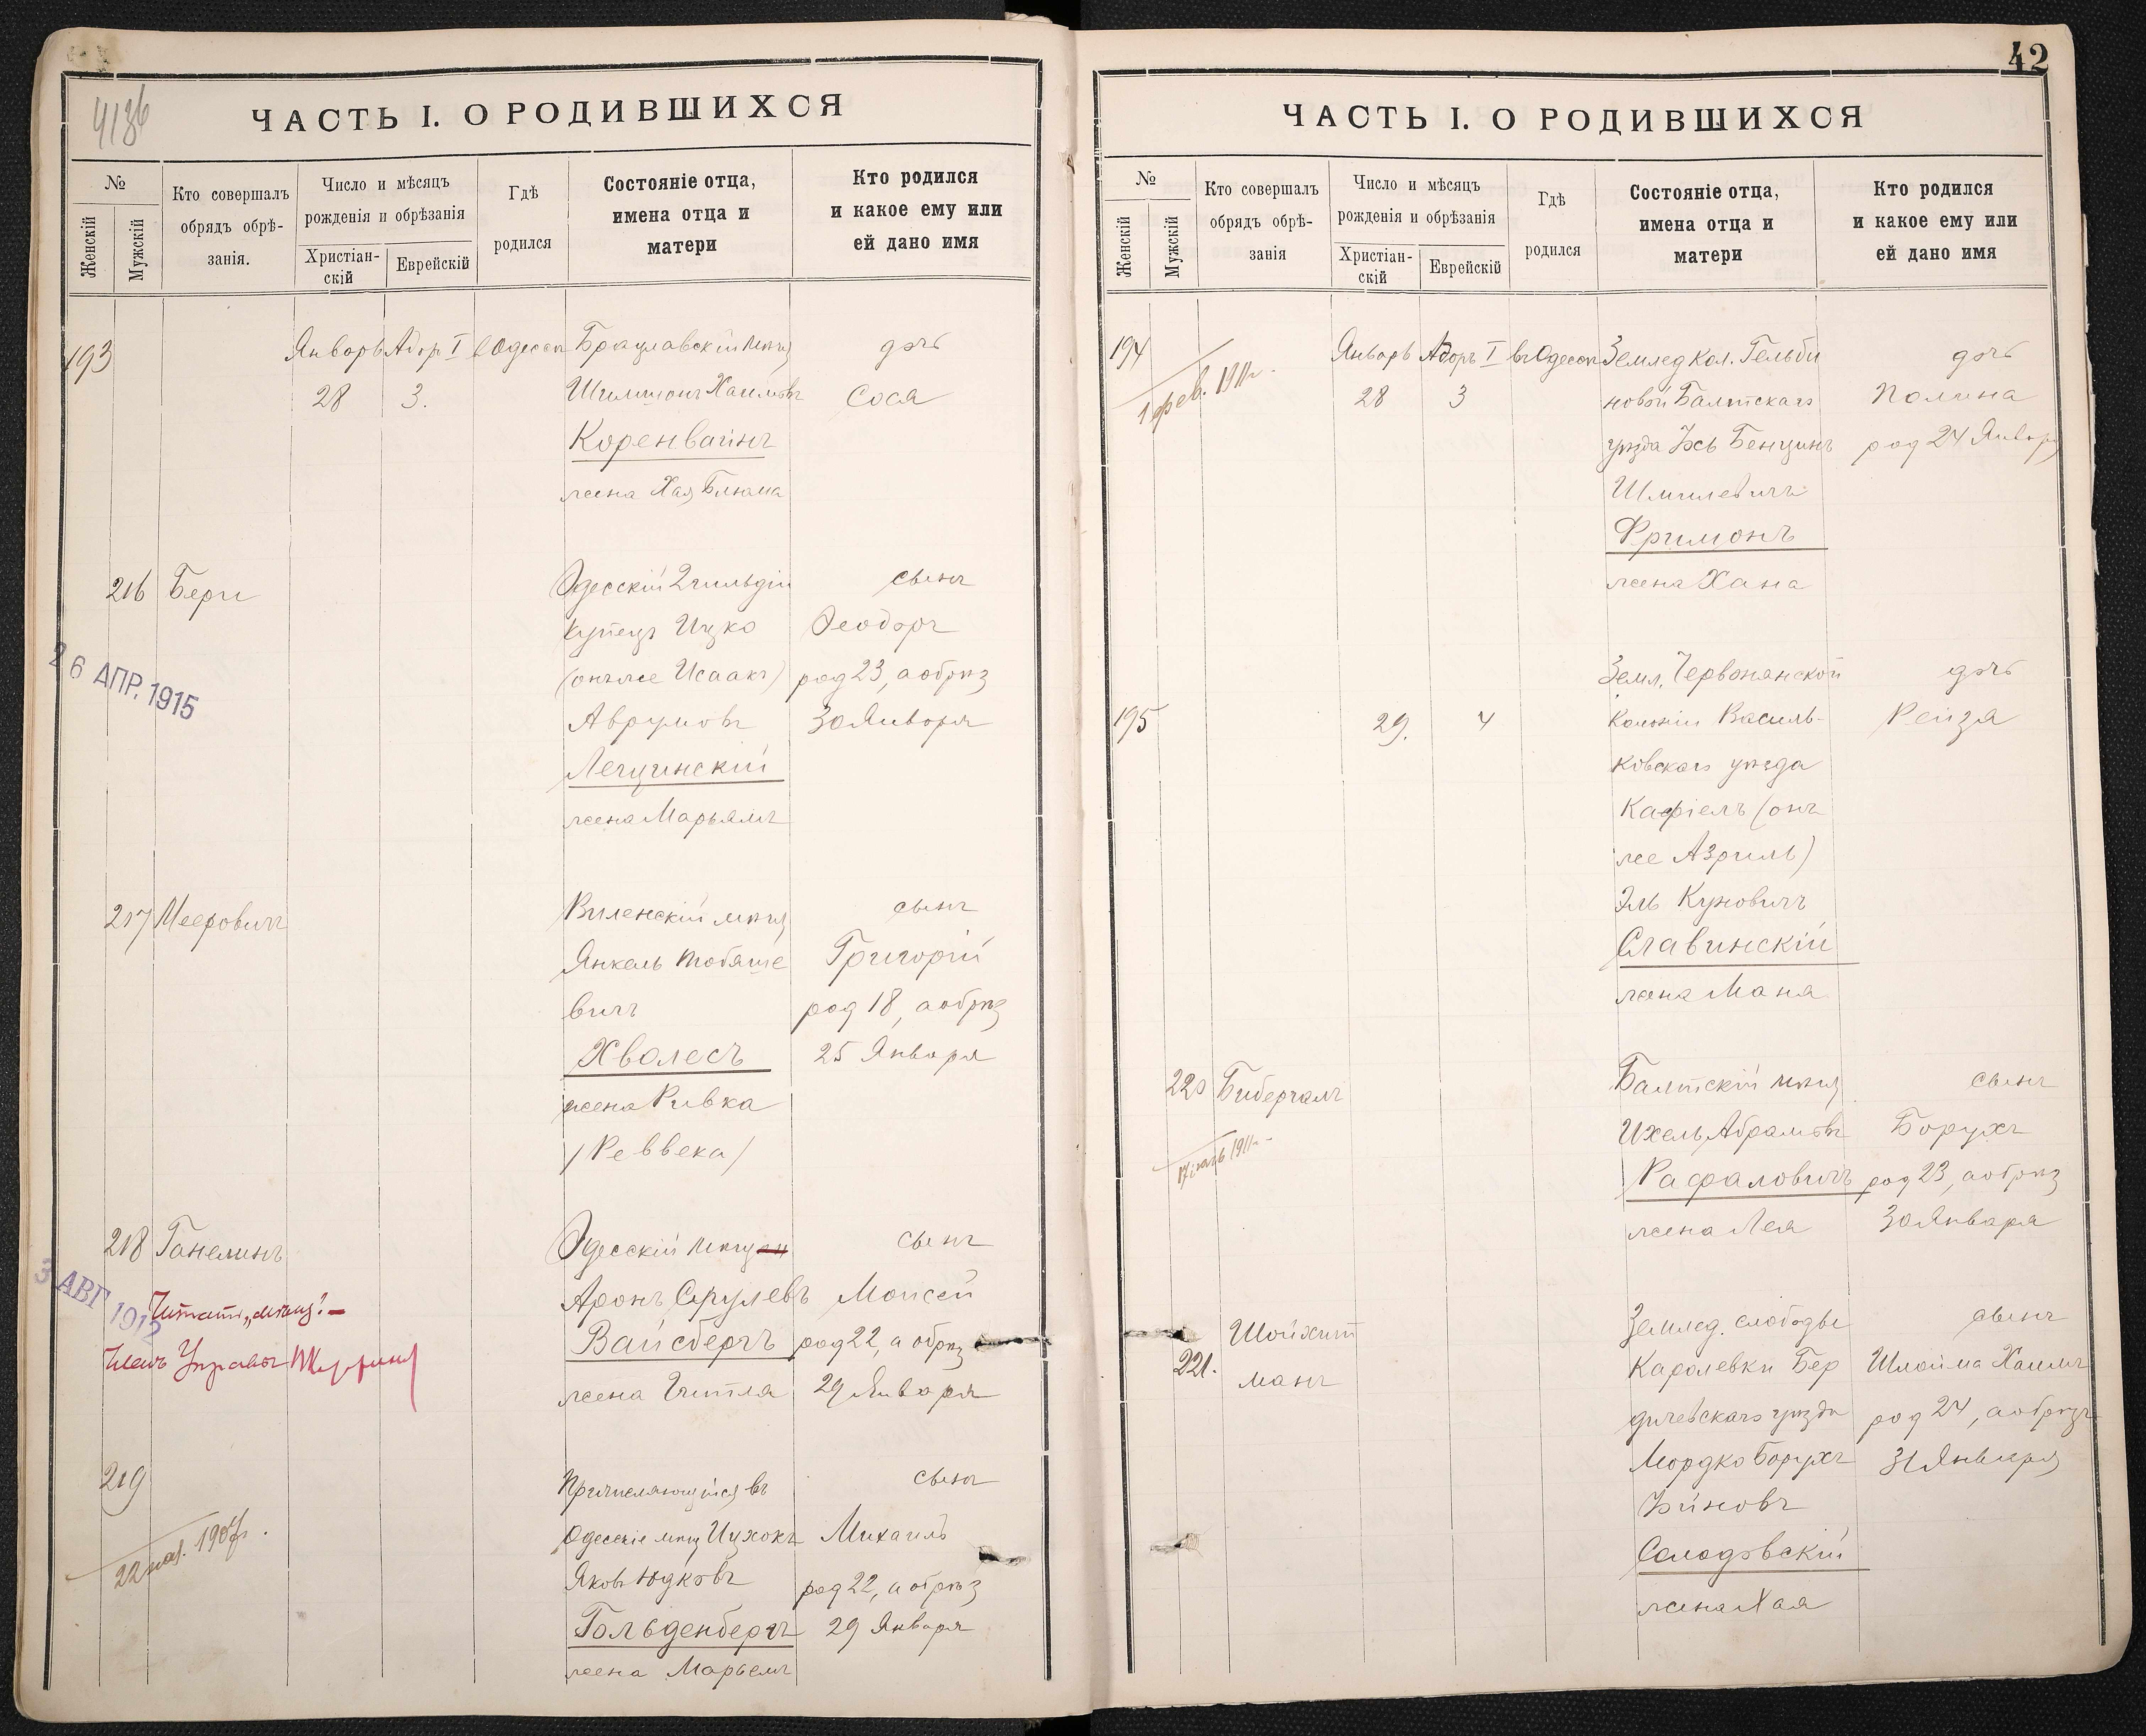 4136
ЧАСТЬ I. О РОДИВШИХСЯ
№
Женскій
Мужскій
Кто совершалъ
обрядъ обрѣ-
занія.
Число и мѣсяцъ
рожденія и обрѣзанія
Христіан-
скій
Еврейскій
Гдѣ
родился
Состояніе отца,
имена отца и
матери
Кто родился
и какое ему или
ей дано имя
193 Январь Адоръ I в Одессѣ Брацлавскій мѣщ дочь
28 3. Шимшонъ Хаимовъ Сося
Коренвайнъ
жена Хая Блюма
216 Бери Одесскій 2 гильдіи сынъ
купецъ Ицко Ѳеодоръ
(онъ же Исаакъ) род 23, а обрѣз
Аврумовъ 30 Января
26 АПР. 1915
Лещинскій
жена Марьямъ
217 Мееровичъ Виленскій мѣщ сынъ
Янкель Тобяше Григорій
вичъ род 18, а обрѣз
Хволесъ 25 Января
жена Ривка
(Реввека)
218 Ганелинъ Одесскій мѣщ сынъ
3 АВГ 1912
Читать „мѣщ".—
Членъ Управы
Аронъ Срулевъ Моисей
Вайсбергъ род 22, а обрѣз
жена Гитля 29 Января
219 Причисляющійся въ сынъ
Одесскіе мѣщ Ицхокъ Михаилъ
Яковъ Юдковъ род 22, а обрѣз
Гольденбергъ 29 Января
жена Марьемъ
42
ЧАСТЬ I. О РОДИВШИХСЯ
№
Женскій
Мужскій
Кто совершалъ
обрядъ обрѣ-
занія
Число и мѣсяцъ
рожденія и обрѣзанія
Христіан-
скій
Еврейскій
Гдѣ
родился
Состояніе отца,
имена отца и
матери
Кто родился
и какое ему или
ей дано имя
194 Январь Адоръ I въ Одессѣ Землед кол. Гельби дочь
1 фев. 1911 г.
28 3 новой Балтскаго Полина
уѣзда Іось Бенціонъ род 24 Января
Шмилевичъ
Фримонъ
жена Хана
Земл. Червонянской дочь
195 29. 4 колоніи Василь- Рейзя
ковскаго уѣзда
Кафіель (онъ
же Азриль)
Эль Куновичъ
Славинскій
жена Маня
220 Биберталъ Балтскій мѣщ сынъ
Ихель Абрамовъ Борухъ
1911 г.
Рафаловичъ род 23, а обрѣз
жена Лея 30 Января
221. Шойхит Землед. слободы сынъ
манъ Каралевки Бер Шлойма Хаимъ
дичевскаго уѣзда род 24, а обрѣзъ
Мордко Борухъ 31 Января
Солодовскій
жена Хая